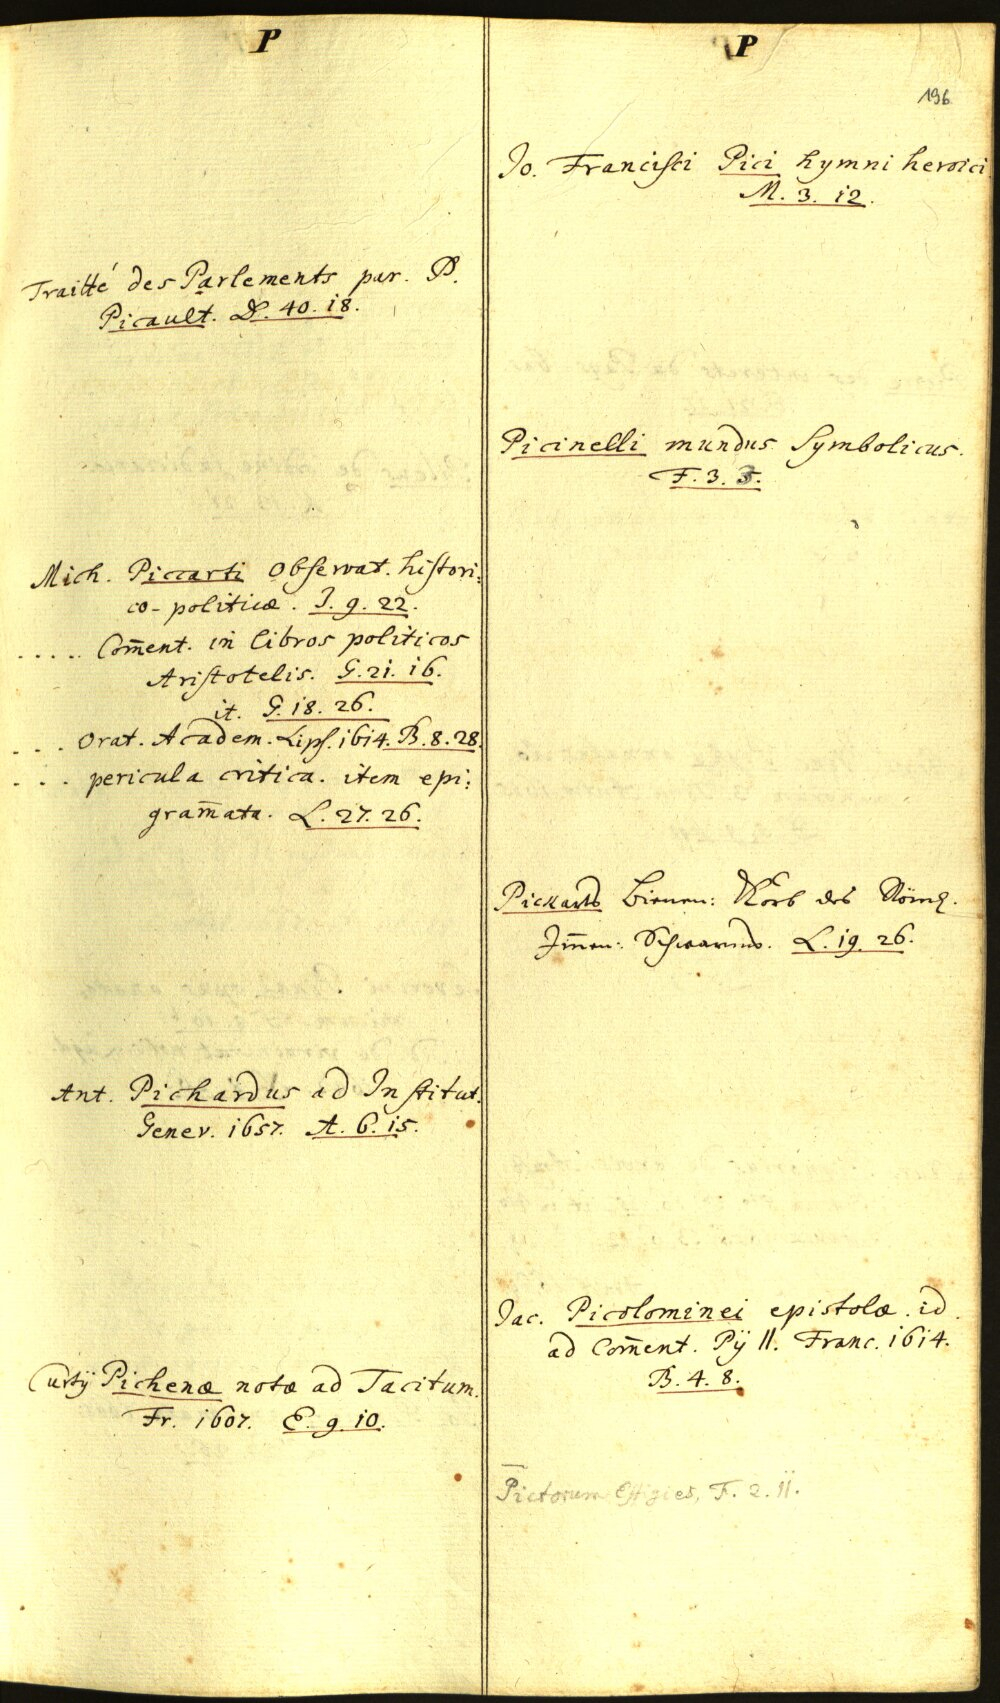 P
Traitté des Parlements par. P.
Picault. D. 40. 18.
Mich. Piccarti Observat. histori:
co-politicæ. J. 9. 22.
..... Com̄ent. in libros politicos
Aristotelis. G. 21. 16.
it. G. 18. 26.
... Orat. Academ. Lips. 1614. B. 8. 28.
... pericula critica. item epi:
gram̄ata. L. 27. 26.
Ant. Pichardus ad Institut.
Genev. 1657. A. 6. 15.
Curtij Pichenæ notæ ad Tacitum.
Fr. 1607. E. 9. 10.
P
196
Jo. Francisci Pici hymni heroici
M. 3. 12.
Picinelli mundus Symbolicus.
F. 3. 5.
Pickarts Bienen: Korb des Röm.
Im̄en: Schwarms. L. 19. 26.
Jac. Picolominei epistolæ. id.
ad Com̄ent. Pij II. Franc. 1614.
B. 4. 8.
Pictorum Effigies, F. 2. 11.